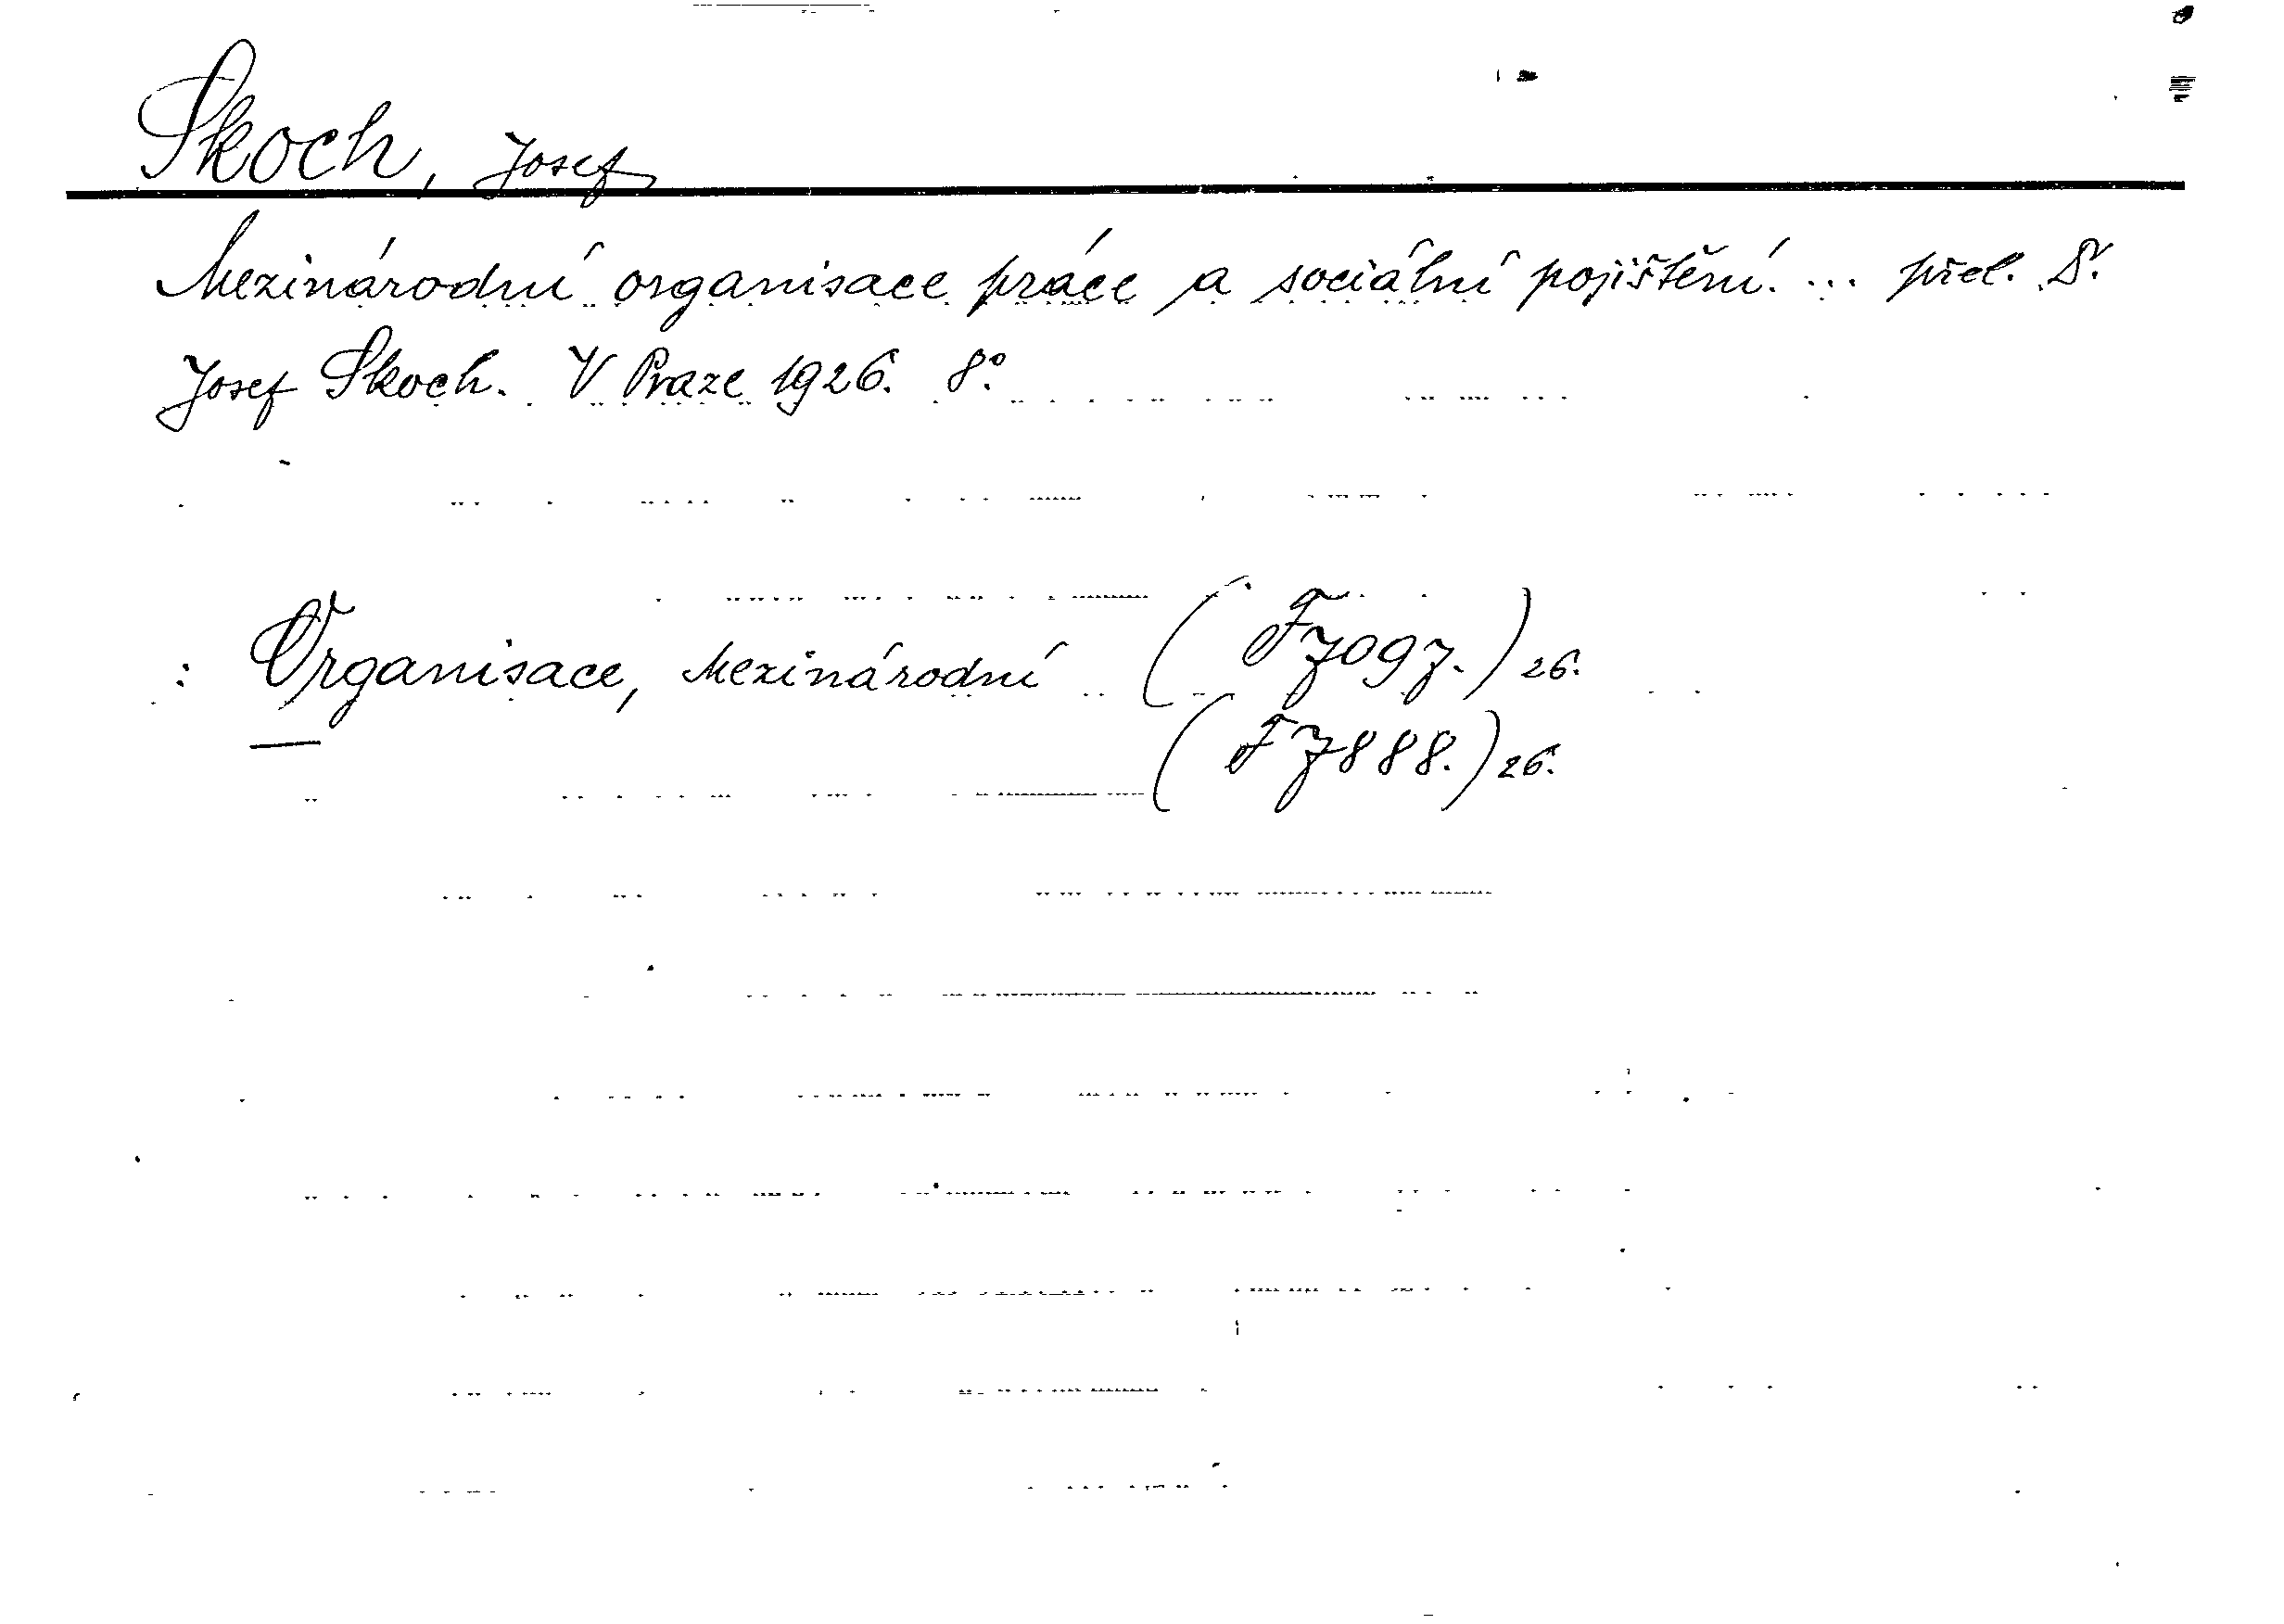 Skoch, Josef
Mezinárodní organisace práce a sociální pojištění. ... přel. Dr.
Josef Skoch. V Praze 1926. 8°.
: Organisace, Mezinárodní (F 7097.) 26.
(F 7888.) 26.